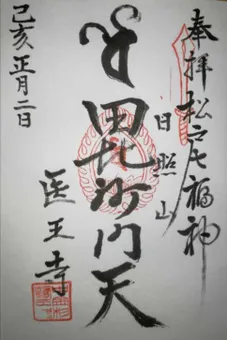 奉拝松戸七福神
日照山
毘沙門天
医王寺
己亥正月二日